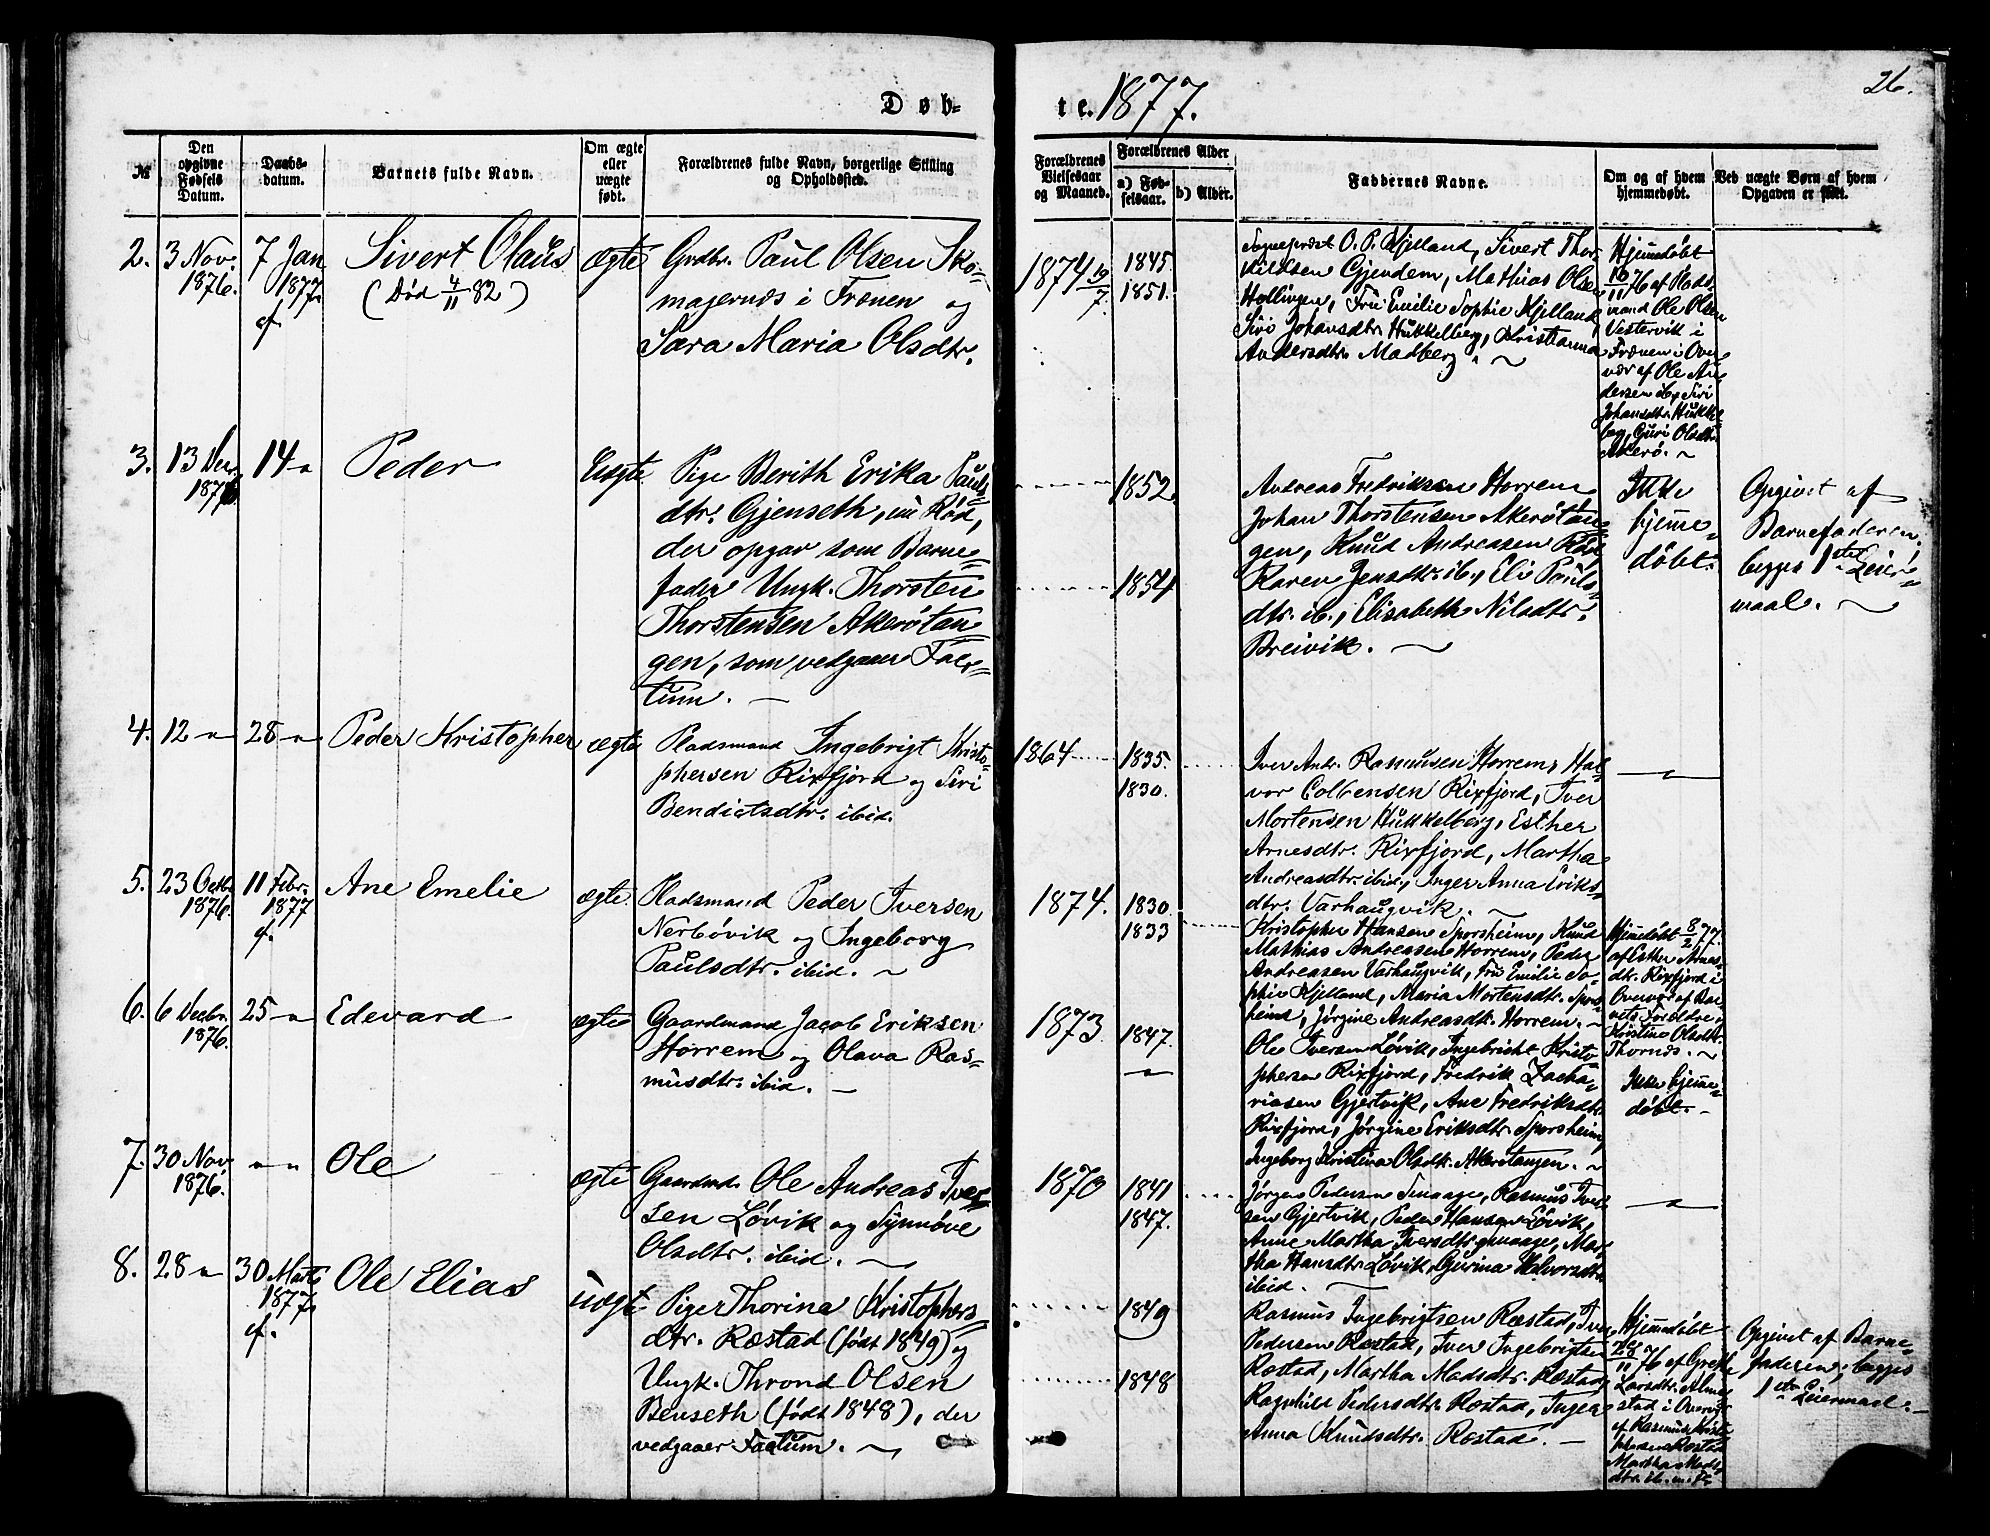 Døb-
te. 1877.
26.
№
Den opgivne Fødsels Datum.
Daabs-datum.
Barnets fulde Navn.
Om ægte eller uægte født.
Forældrenes fulde Navn, borgerlige Stilling og Opholdssted.
Forældrenes Vielsesaar og Maaned.
Forældrenes Alder
a) Fødselsaar.
b) Alder.
Faddernes Navne.
Om og af hvem hjemmedøbt.
Ved uægte Børn af hvem Opgaven er skét.
2.
3 Nov.
1876.
7 Jan
1877.
Sivert Olaus
(Død 4/11 82)
ægte
Grdbr. Paul Olsen Sko-
magernæs i Frænen og
Sara Maria Olsdtr.
1874 10/7.
1845
1851.
Sognepræst O. P. Kjelland, Sivert Thor-
kildsen Gjendem, Mathias Olsen
Hollingen, Fru Emilie Sophie Kjelland,
Siri Johansdtr. Hukkelberg, Kristianna
Andersdtr. Madberg. ~
Hjemmedøbt
16/11 76 af Plads-
mand Ole Olsen
Vestervik i
Frænen i Over-
vær af Ole An-
dersen ib, Siri
Johansdtr. Hukkel-
berg, Guri Olsdtr.
Akerø. ~
3.
13 Dec.
1876
14 -"-
Peder
Uægte
Pige Berith Erika Pauls-
dtr. Gjenseth, nu Rød,
der opgav som Barne-
fader Ungk. Thorsten
Thorstensen Akerøtan-
gen, som vedgaaer Fac-
tum. —
1852.
1854
Andreas Fredriksen Horrem
Johan Thorstensen Akerøtan-
gen, Knud Andreasen Rød,
Karen Jensdtr. ib., Eli Pauls-
dtr. ib., Elisabeth Nilsdtr.
Breivik. ~
Ikke
hjemme-
døbt.
Opgivet af
Barnefaderen;
begges 1ste Leier-
maal. ~
4.
12 -"-
28 -"-
Peder Kristopher
ægte
Pladsmand Ingebrigt Kristo-
phersen Rixfjord og Siri
Bendictsdtr. ibid.
1864
1835.
1830.
Iver Andr. Rasmussen Horrem, Hal-
vor Colbensen Rixfjord, Iver
Mortensen Hukkelberg, Esther
Arnesdtr. Rixfjord, Martha
Andreasdtr. ibid., Inger Anna Eriks-
dtr. Varhaugvik. ~
-"-
5.
23 Octb.
1876.
11 Febr.
1877
Ane Emelie
ægte.
Pladsmand Peder Iversen
Nerbøvik og Ingeborg
Paulsdtr. ibid. ~
1874.
1830
1833
Kristopher Hansen Sporsheim, Knud
Mathias Andreasen Horrem, Peder
Andreasen Varhaugvik, Fru Emilie So-
phie Kjelland, Maria Mortensdtr. Spors-
heim, Jørgine Andreasdtr. Horrem. ~
Hjemmedøbt 8/2 77.
af Esther Arnes-
dtr. Rixfjord i
Overvær af Bar-
nets Forældre,
Kristine Olsdtr.
Thornæs. ~
6.
6 Decbr.
1876.
25 -"-
Edevard
ægte
Gaardmand Jacob Eriksen
Horrem og Olava Ras-
musdtr. ibid. —
1873
1847.
-"-
Ole Iversen Løvik, Ingebricht Kristo-
phersen Rixfjord, Fredrik Zacha-
riasen Gjertvik, Ane Fredriksdtr.
Rixfjord, Jørgine Eriksdtr. Sporsheim,
Ingeborg Kristina Olsdtr. Akerøtangen. ~
Ikke hjemme-
døbt. -
7.
30 Nov.
1876.
-"- -"-
Ole
ægte
Gaardmd. Ole Andreas Iver-
sen Løvik og Synnøve
Olsdtr. ibid. ~
1870
1841
1847.
Jørgen Pedersen Smaage, Rasmus Iver-
sen Gjertvik, Peder Hansen Løvik,
Anne Martha Iversdtr. Smaage, Mar-
tha Hansdtr. Løvik, Gurina Halvorsdtr.
ibid. ~
-"-
8.
28 -"-
30 Marts
1877.
Ole Elias
uægte
Pige Thorina Kristophers-
dtr. Ræstad (født 1849) og
Ungk. Thrond Olsen
Benseth (født 1848), der
vedgaaer Factum. ~
1849
1848
Rasmus Ingebrigtsen Ræstad, Iver
Pedersen Ræstad, Iver Ingebrigtsen
Ræstad, Martha Madsdtr. Ræstad,
Ragnhild Pedersdtr. Ræstad, Inger
Anna Knudsdtr. Ræstad. —
Hjemmedøbt
28/11 76 af Grethe
Larsdtr. Alme-
stad i Overvær
af Rasmus Kristo-
phersen Ræstad
Martha Mads-
dtr. ib. m. fl.
Opgivet af Barne-
faderen; begges
1ste Leiermaal. —